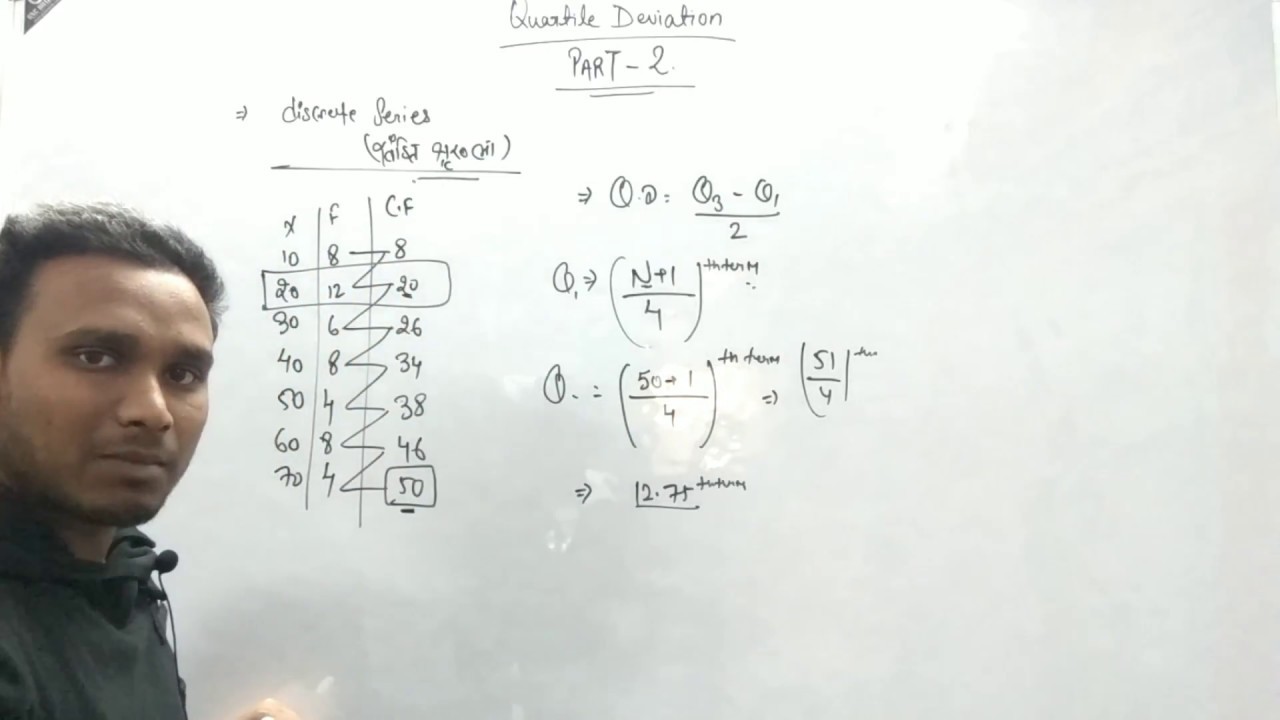 Quartile Deviation
PART-2.
⇒ discrete Series
x | f | C.F
10 | 8 | 8
20 | 12 | 20
30 | 6 | 26
40 | 8 | 34
50 | 4 | 38
60 | 8 | 46
70 | 4 | 50
⇒ Q.D = (Q₃ - Q₁) / 2
Q₁ ⇒ ((N+1) / 4) th term
Q. = ((50+1) / 4) th term ⇒ (51 / 4) th
⇒ 12.75 th term